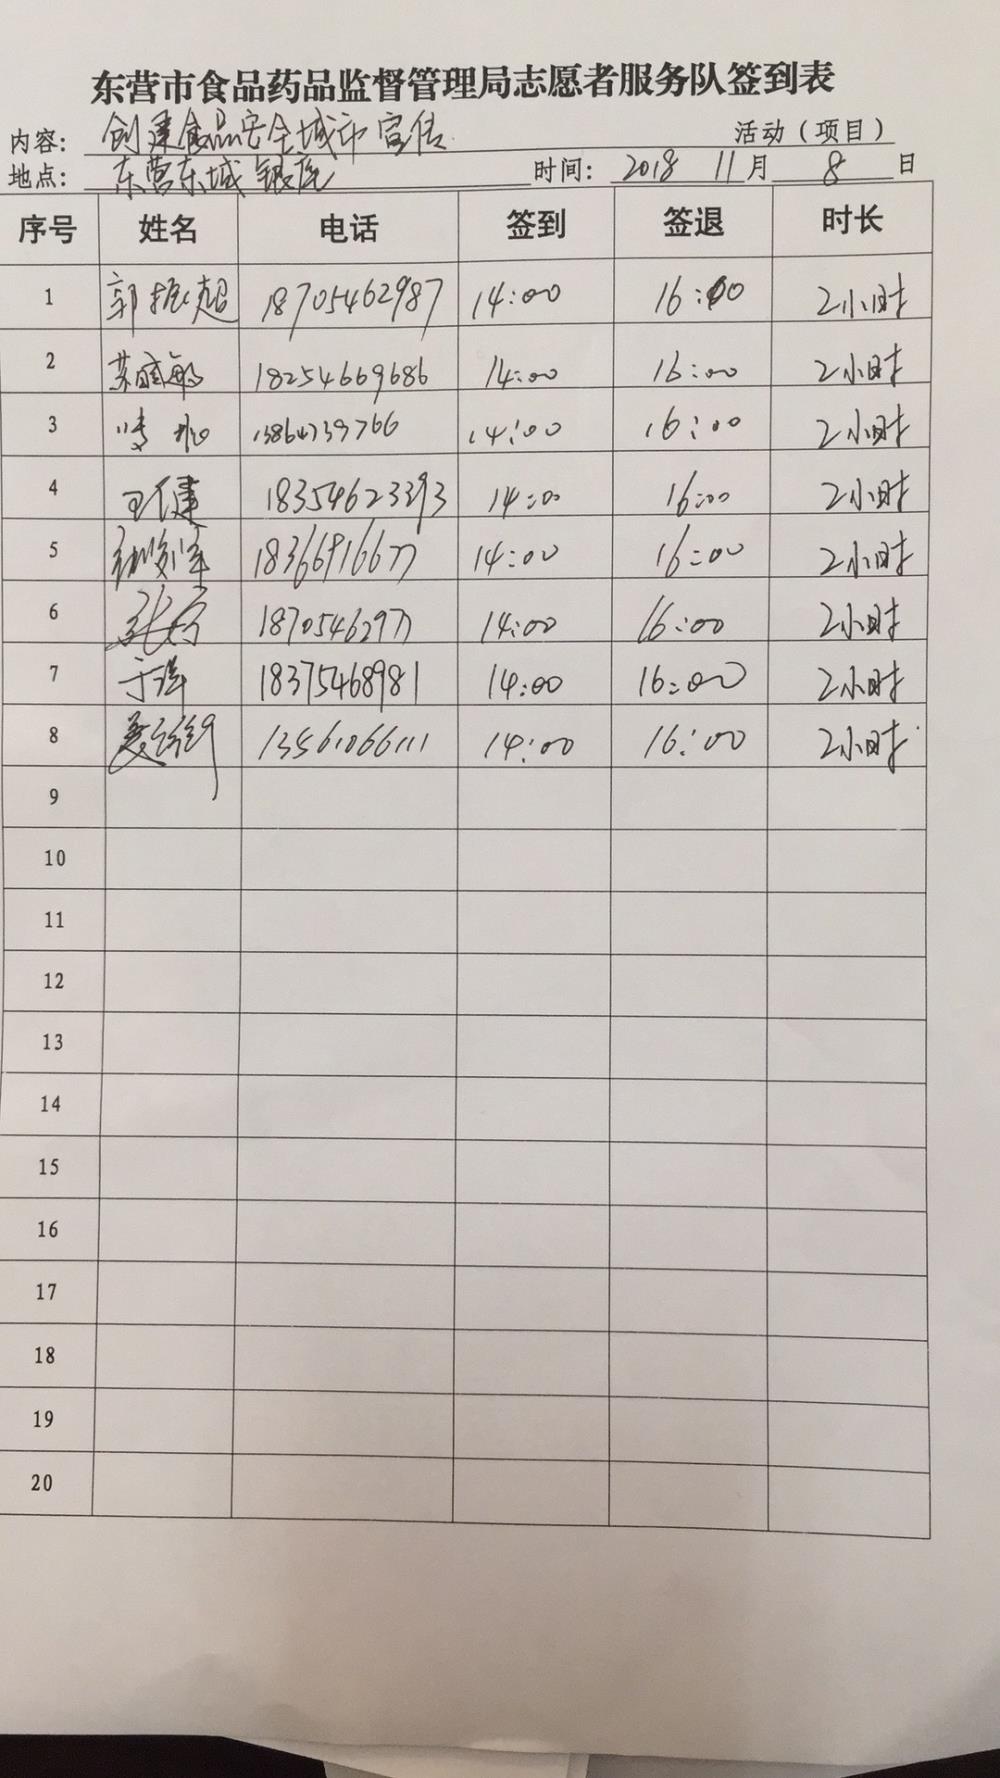 东营市食品药品监督管理局志愿者服务队签到表
内容: 创建食品安全城市宣传 活动(项目)
地点: 东营东城银座 时间: 2018 11月 8 日
序号 姓名 电话 签到 签退 时长
1 郭振超 18705462987 14:00 16:00 2小时
2 苏 敏 18254669686 14:00 16:00 2小时
3 13864739766 14:00 16:00 2小时
4 王健 18354623393 14:00 16:00 2小时
5 18366916677 14:00 16:00 2小时
6 张 1870546297 14:00 16:00 2小时
7 于洋 18375468981 14:00 16:00 2小时
8 13561066111 14:00 16:00 2小时
9
10
11
12
13
14
15
16
17
18
19
20